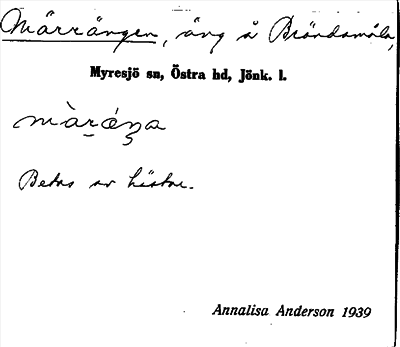 Märrängen, äng å Brändamåla,
Myresjö sn, Östra hd, Jönk. l.
màráŋa
Betas av hästar.
Annalisa Anderson 1939